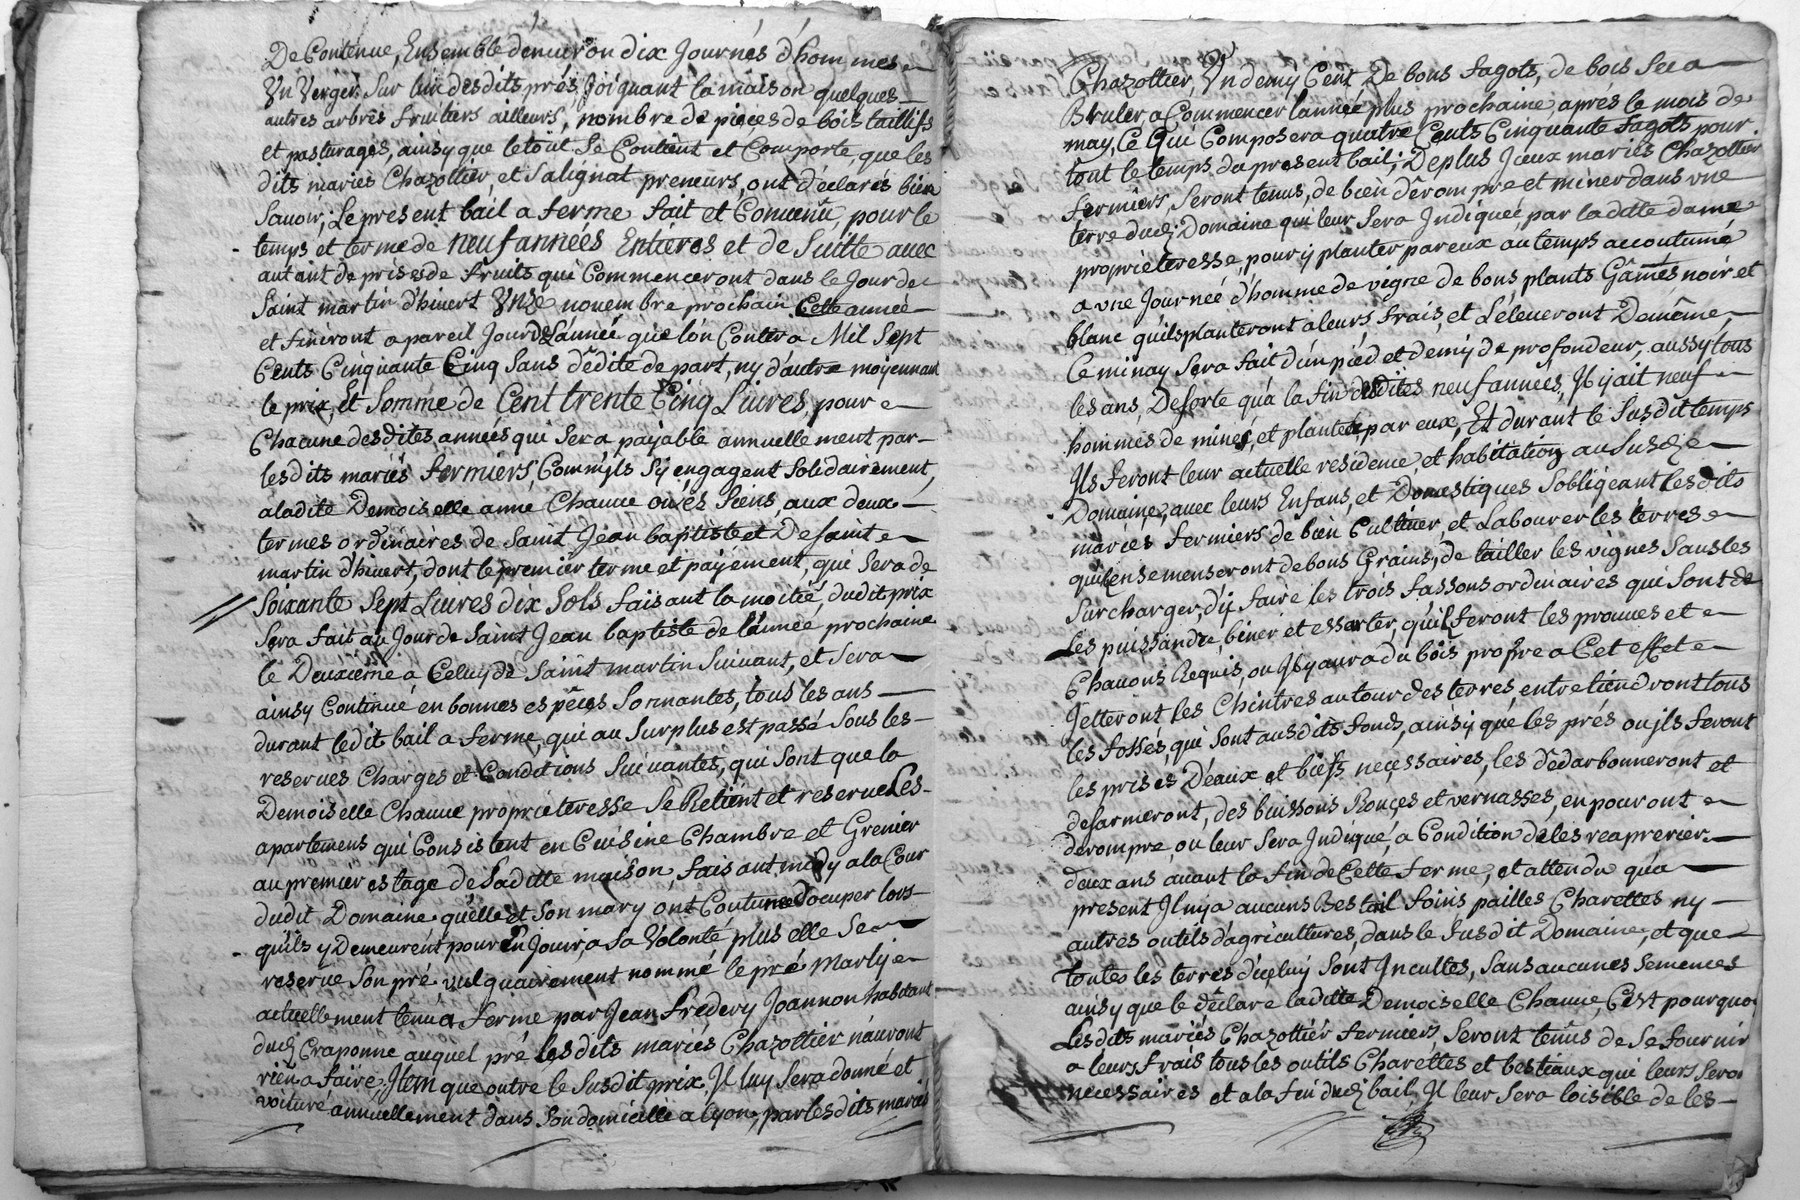 De Contenue, Ensemble denuiron dix Journés d'hommes
Un Verger Sur lun desdits prés, Joignant la maison quelques
autres arbres fruitiers ailleurs, nombre de pieçes de bois taillifs
et pasturages, ainsy que le tout Se Contient et Comporte, que les
dits mariés Chazottier, et Salignat preneurs, ont déclarés bien
Sauoir; Le present bail a ferme fait et Conuenu, pour le
temps et terme de neuf années Entieres et de Suitte auec
autant de prises de fruits qui Commenceront dans le Jour de
Saint martin d'hiuert Unze nouembre prochain Cette année
et finiront a pareil Jour de L'année que lon Contera Mil Sept
Cents Cinquante Cinq Sans dédite de part, ny d'autre moyennant
le prix, et Somme de Cent trente Cinq Liures, pour
Chacune desdites années qui Sera payable annuellement par
lesdits mariés fermiers, Comm'jls Sy engagent Solidairement,
a ladite Demoiselle anne Chauue ou ès Siens, aux deux
termes ordinaires de Saint Jean baptiste et De Saint
martin d'hiuert, dont le premier terme et payement, qui Sera de
Soixante Sept Liures dix Sols faisant la moitié, dudit prix
Sera fait au Jour de Saint Jean baptiste de l'année prochaine
le Deuxième a Celuy de Saint martin Suiuant, et Sera
ainsy Continué en bonnes espéçes Sonnantes, tous les ans
durant ledit bail a ferme, qui au Surplus est passé Sous les
reserues Charges et Conditions Suiuantes, qui Sont que la
Demoiselle Chauue proprieteresse Se Retient et reserue Les
apartemens qui Consistent en Cuisine Chambre et Grenier
au premier estage de Saditte maison, faisant midy a la Cour
dudit Domaine quelle et Son mary ont Coutume d'ocuper lors
qu'ils y Demeurent pour En Jouir, a Sa Volonté plus elle Se
reserue Son pré vulguairement nommé le pré Marly
actuellement tenu a ferme par Jean frédery Joannon habitant
dud. Craponne auquel pré lesdits mariés Chazottier nauront
rien a faire, Jtem que outre le Susdit prix Jl luy Sera donné et
voituré annuellement dans Son domicille a Lyon, par lesdits mariés
Chazottier, Un demy Cent De bons fagots, de bois Sec a
Bruler, a Commencer lannée plus prochaine, aprés le mois de
may, Ce Qui Composera quatre Cents Cinquante fagots pour
tout le temps du present bail; De plus Jceux mariés Chazottier
fermiers Seront tenus, de bien dérompre et miner dans vne
terre dud. Domaine qui leur Sera Jndiqueé, par laditte dame
proprieteresse, pour y planter par eux au temps accoutumé
a vne Journeé d'homme de vigne de bons plants Gâmés noir et
blanc quils planteront a leurs frais, et L'éleueront De même,
Ce minay Sera fait d'un pied et demy de profondeur, aussy tous
les ans, De sorte qu'a la fin desdites neuf années, Jl y ait neuf
hommés de minés, et plantés par eux, Et durant le Susdit temps
Jls feront leur actuelle residence, et habitation au Susd.
Domaine, auec leurs Enfans, et Domestiques S'obligeant Lesdits
mariés fermiers de bien Cultiuer, et Labourer les terres
quil ensemenseront de bons Grains, de tailler les vignes Sans les
Surcharger, d'y faire les trois fassons ordinaires qui Sont de
Les puissandre, biner et essarter, quil feront les prouues et
Chauons Requis, ou Jl y aura du bois propre a Cet effet
Jetteront les Chintres autour des terres, entretiendront tous
les fossés, qui Sont ausdits fonds, ainsy que les prés ou jls feront
les prises D'eaux et biefs neçessaires, les dédarbonneront et
desarmeront, des buissons Ronçes et vernasses, en pouront
dérompre, ou leur Sera Jndiqué, a Condition de les reaprerier
deux ans auant la fin de Cette ferme, et attendu qua
present Jl ny a aucuns Bestail foins pailles Charettes ny
autres outils d'agricultures, dans le Susdit Domaine, et que
toutes les terres d'içeluy Sont Jncultes, Sans aucunes Semences
ainsy que le déclare laditte Demoiselle Chauue, C'est pourquoi
Lesdits mariés Chazottier fermiers, Seront tenus de Se fournir
a leurs frais tous les outils Charettes et bestiaux qui leurs Sero
necessaires et a la fin dud. bail Jl leur Sera loisible de les